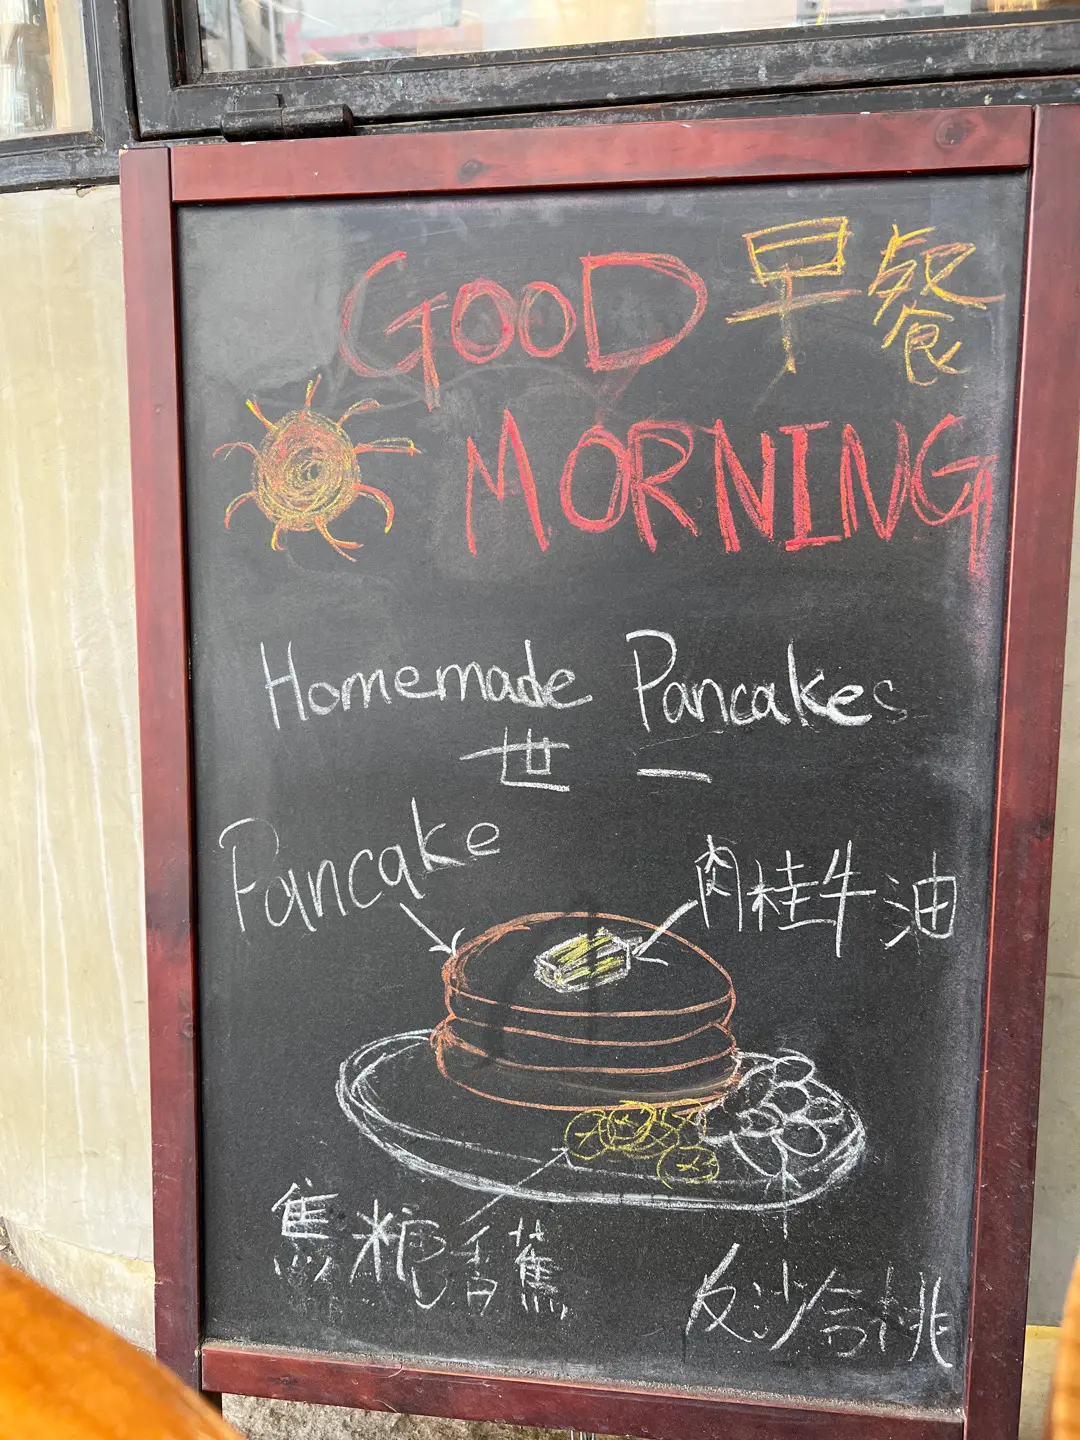 GOOD 早餐
MORNING
Homemade Pancakes
世一
Pancake
肉桂牛油
焦糖香蕉
反沙合桃